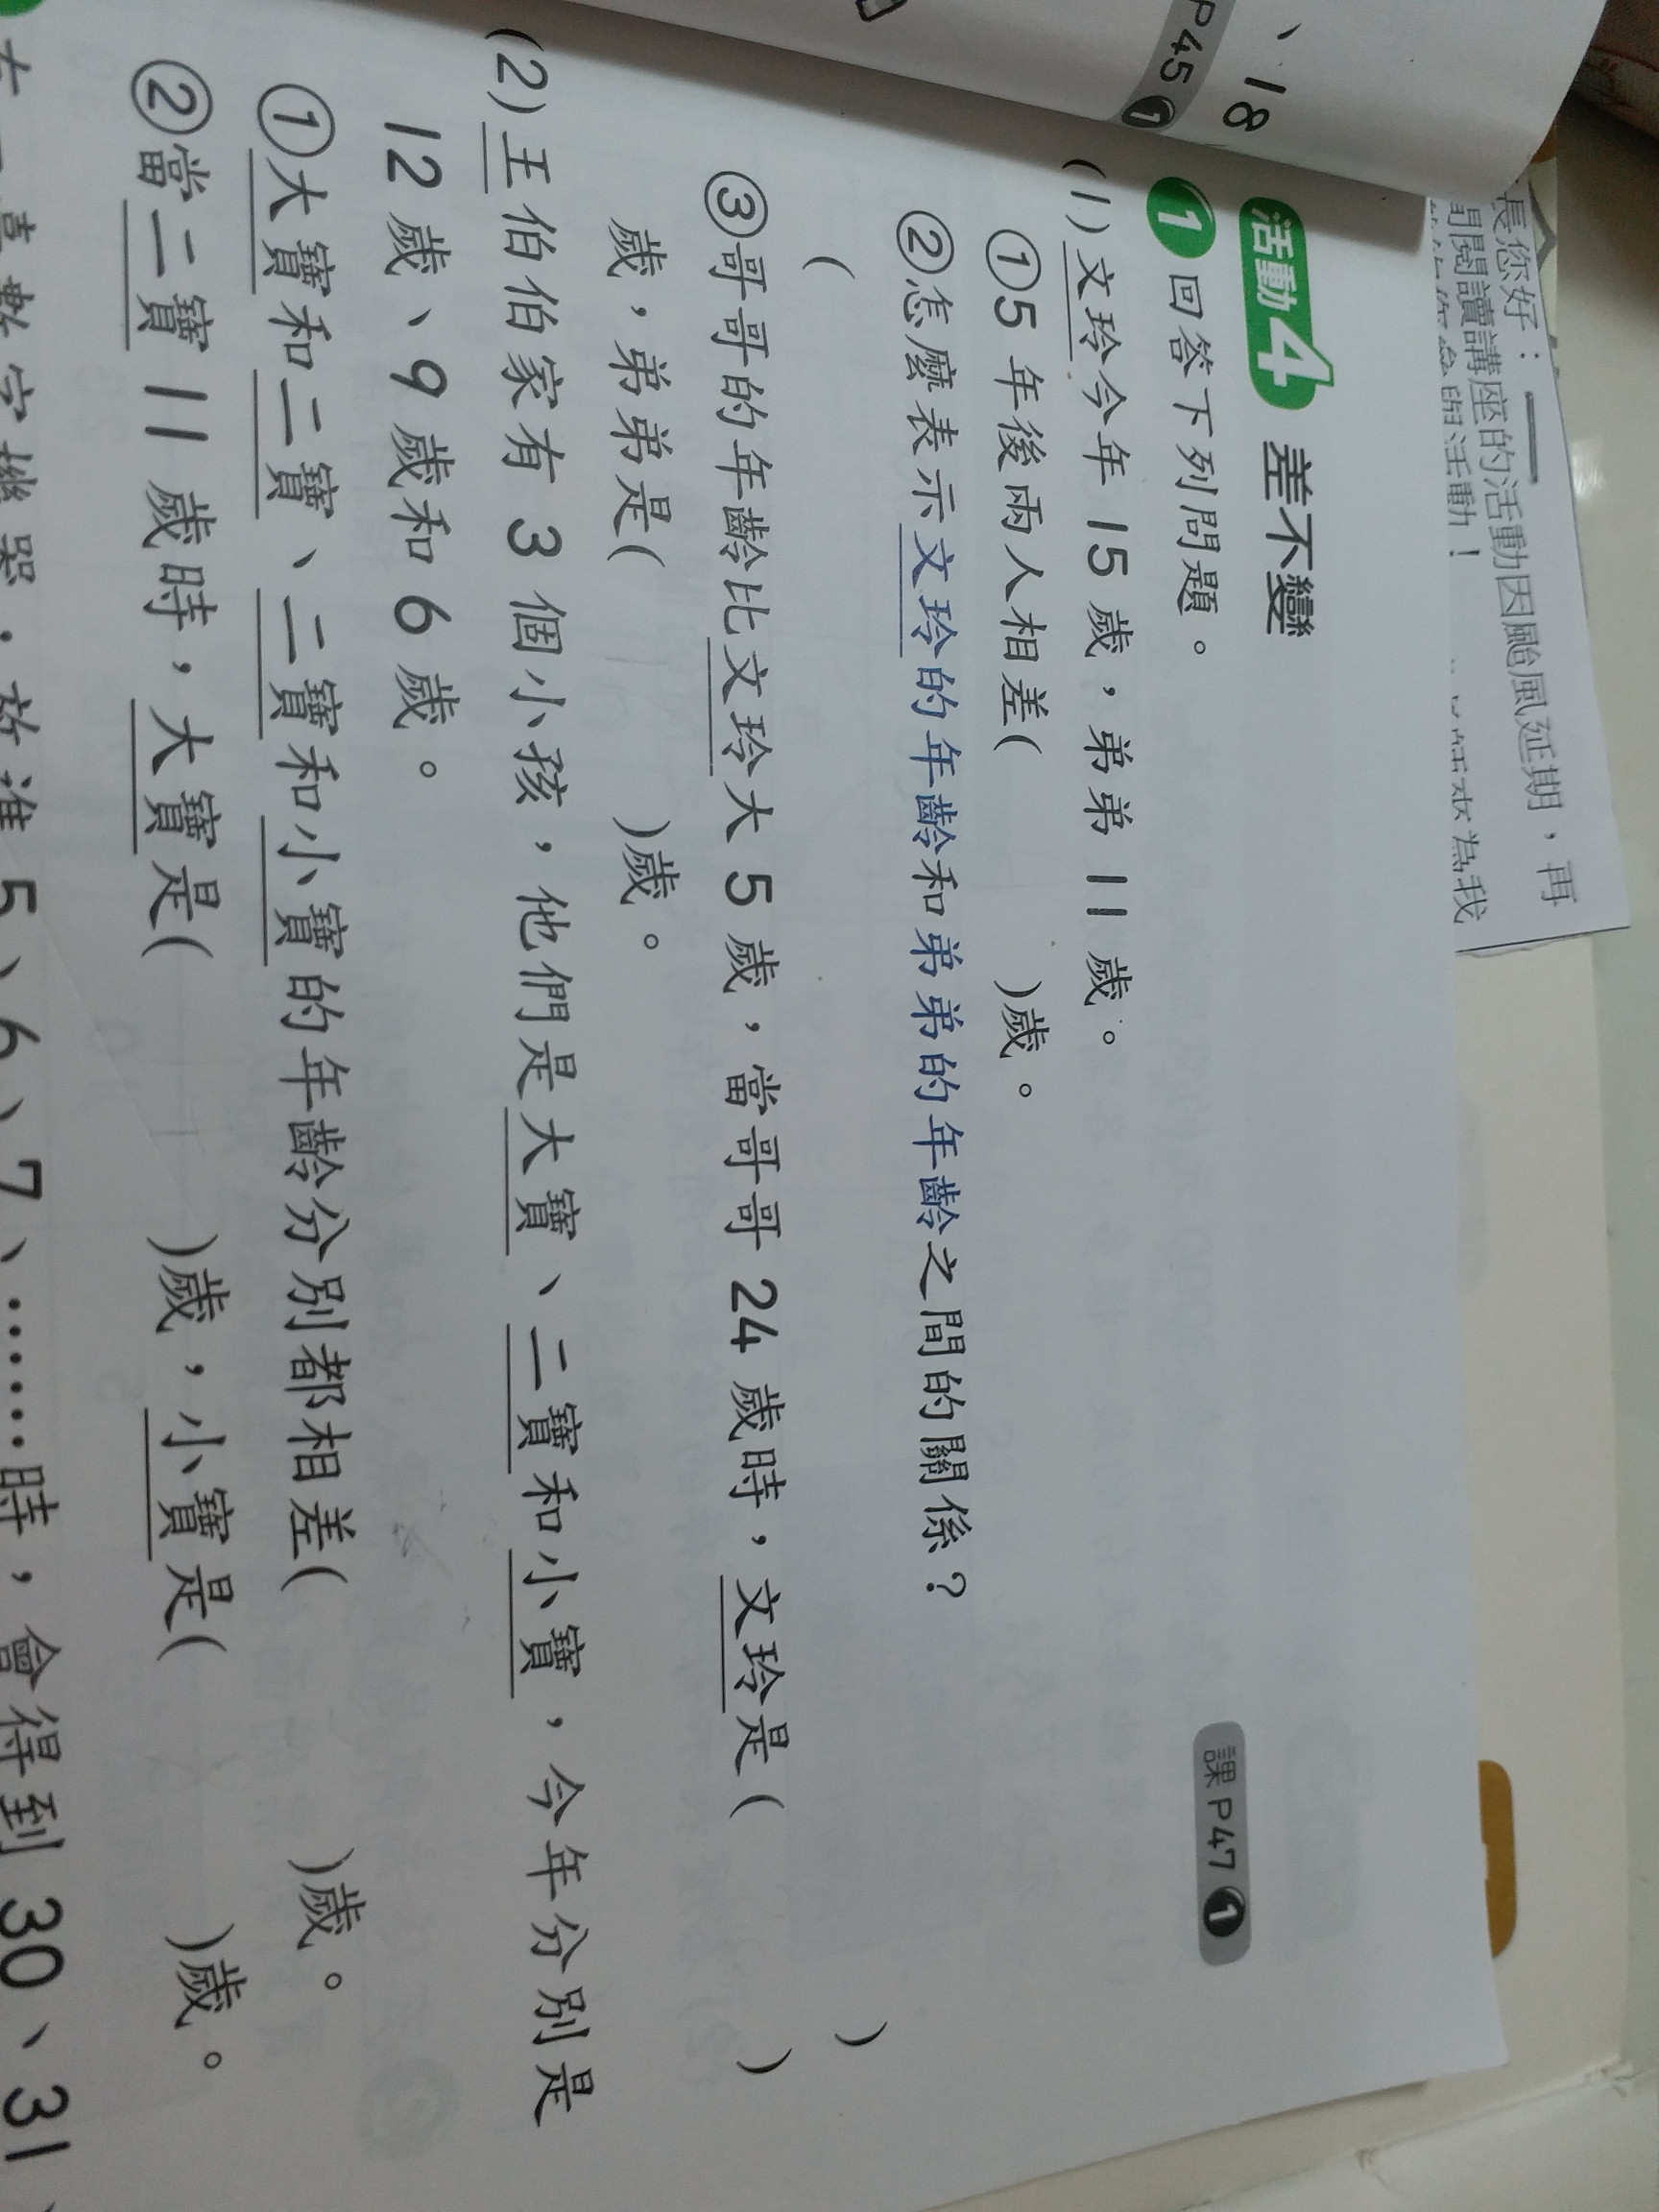 長您好：
閱讀講座的活動因颱風延期，再
、18
P45 1
活動4 差不變
課P47 1
1 回答下列問題。
(1)文玲今年15歲，弟弟11歲。
①5年後兩人相差(　　)歲。
②怎麼表示文玲的年齡和弟弟的年齡之間的關係？
(　　)
③哥哥的年齡比文玲大5歲，當哥哥24歲時，文玲是(　　)
歲，弟弟是(　　)歲。
(2)王伯伯家有3個小孩，他們是大寶、二寶和小寶，今年分別是
12歲、9歲和6歲。
①大寶和二寶、二寶和小寶的年齡分別都相差(　　)歲。
②當二寶11歲時，大寶是(　　)歲，小寶是(　　)歲。
5、6、7、……時，會得到30、31、